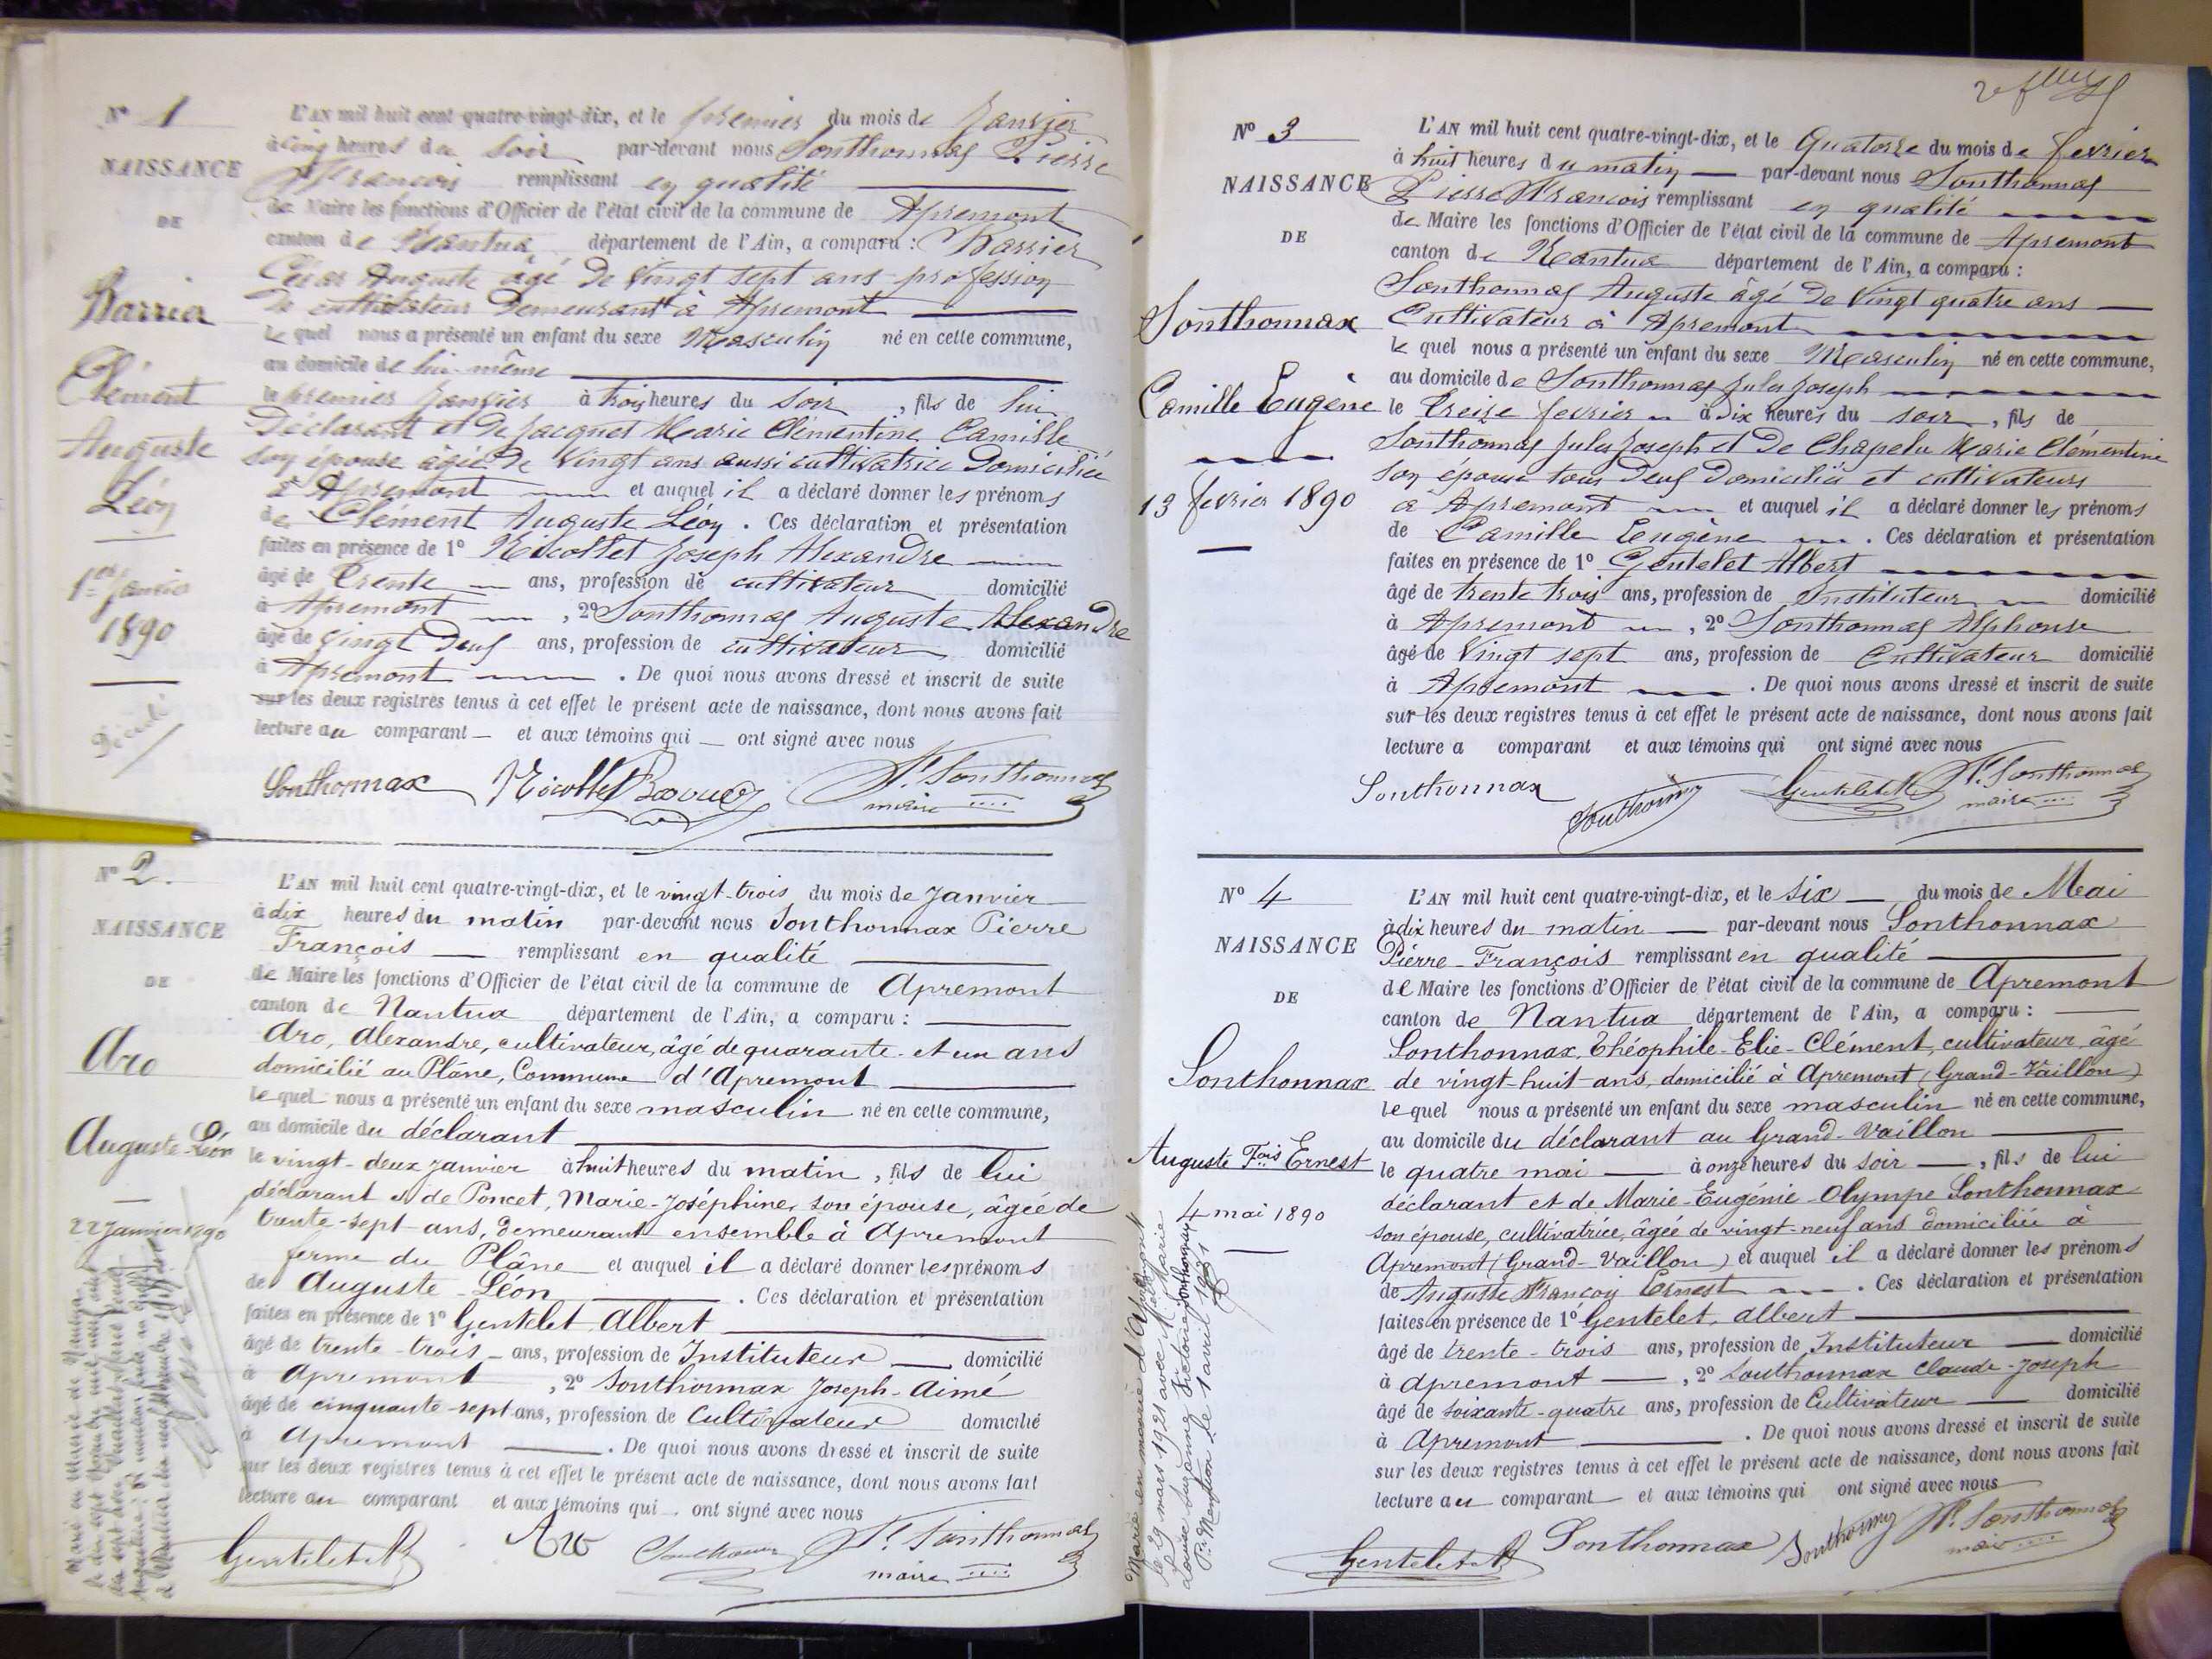 Nº 1
NAISSANCE
DE
Barrier
Clément
Auguste
Léon
1er Janvier
1890
Décédé
L'AN mil huit cent quatre-vingt-dix, et le premier du mois de Janvier
à cinq heures du soir par-devant nous Sonthonnax Pierre
François remplissant en qualité
de Maire les fonctions d'Officier de l'état civil de la commune de Apremont
canton de Nantua département de l'Ain, a comparu : Barrier
César Auguste âgé de vingt sept ans profession
de cultivateur demeurant à Apremont
le quel nous a présenté un enfant du sexe Masculin né en cette commune,
au domicile de lui-même
le premier Janvier à trois heures du soir, fils de lui
Déclarant et de Jacquet Marie Clémentine Camille
son épouse âgée de vingt ans aussi cultivatrice domiciliée
à Apremont et auquel il a déclaré donner les prénoms
de Clément Auguste Léon. Ces déclaration et présentation
faites en présence de 1º Nicollet Joseph Alexandre
âgé de trente ans, profession de cultivateur domicilié
à Apremont, 2º Sonthonnax Auguste Alexandre
âgé de vingt deux ans, profession de cultivateur domicilié
à Apremont. De quoi nous avons dressé et inscrit de suite
sur les deux registres tenus à cet effet le présent acte de naissance, dont nous avons fait
lecture au comparant et aux témoins qui ont signé avec nous
Sonthonnax Nicollet Barrier P. Sonthonnax
maire
Nº 2.
NAISSANCE
DE
Aro
Auguste-Léon
22 Janvier 1890
L'AN mil huit cent quatre-vingt-dix, et le vingt-trois du mois de Janvier
à dix heures du matin par-devant nous Sonthonnax Pierre
François remplissant en qualité
de Maire les fonctions d'Officier de l'état civil de la commune de Apremont
canton de Nantua département de l'Ain, a comparu :
Aro, Alexandre, cultivateur, âgé de quarante-et un ans
domicilié au Plâne, Commune d'Apremont
le quel nous a présenté un enfant du sexe masculin né en cette commune,
au domicile du déclarant
le vingt-deux janvier à huit heures du matin, fils de lui
déclarant et de Poncet, Marie-Joséphine, son épouse, âgée de
trente-sept ans, demeurant ensemble à Apremont
ferme du Plâne et auquel il a déclaré donner les prénoms
de Auguste-Léon. Ces déclaration et présentation
faites en présence de 1º Gentelet Albert
âgé de trente-trois ans, profession de Instituteur domicilié
à Apremont, 2º Sonthonnax Joseph-Aimé
âgé de cinquante-sept ans, profession de Cultivateur domicilié
à Apremont. De quoi nous avons dressé et inscrit de suite
sur les deux registres tenus à cet effet le présent acte de naissance, dont nous avons fait
lecture au comparant et aux témoins qui ont signé avec nous
Gentelet A Aro Sonthonnax P. Sonthonnax
maire
Nº 3
NAISSANCE
DE
Sonthonnax
Camille Eugène
13 février 1890
L'AN mil huit cent quatre-vingt-dix, et le Quatorze du mois de février
à huit heures du matin par-devant nous Sonthonnax
Pierre François remplissant en qualité
de Maire les fonctions d'Officier de l'état civil de la commune de Apremont
canton de Nantua département de l'Ain, a comparu :
Sonthonnax Auguste âgé de vingt quatre ans
Cultivateur à Apremont
le quel nous a présenté un enfant du sexe Masculin né en cette commune,
au domicile de Sonthonnax Jules Joseph
le treize février à dix heures du soir, fils de
Sonthonnax Jules Joseph et de Chapelu Marie Clémentine
son épouse tous deux domiciliés et cultivateurs
à Apremont et auquel il a déclaré donner les prénoms
de Camille Eugène. Ces déclaration et présentation
faites en présence de 1º Gentelet Albert
âgé de trente trois ans, profession de Instituteur domicilié
à Apremont, 2º Sonthonnax Alphonse
âgé de vingt sept ans, profession de Cultivateur domicilié
à Apremont. De quoi nous avons dressé et inscrit de suite
sur les deux registres tenus à cet effet le présent acte de naissance, dont nous avons fait
lecture a comparant et aux témoins qui ont signé avec nous
Sonthonnax Sonthonnax Gentelet A P. Sonthonnax
maire
Nº 4
NAISSANCE
DE
Sonthonnax
Auguste Fois Ernest
4 mai 1890
Marié en mairie d'Apremont
le 29 mars 1921 avec Melle Marie
Louise Suzanne Victorine Sonthonnax
P. Mention le 1 avril 1921
L'AN mil huit cent quatre-vingt-dix, et le six du mois de Mai
à dix heures du matin par-devant nous Sonthonnax
Pierre-François remplissant en qualité
de Maire les fonctions d'Officier de l'état civil de la commune de Apremont
canton de Nantua département de l'Ain, a comparu :
Sonthonnax, Théophile-Elie-Clément, cultivateur, âgé
de vingt-huit ans, domicilié à Apremont (Grand-Vaillon)
le quel nous a présenté un enfant du sexe masculin né en cette commune,
au domicile du déclarant au Grand-Vaillon
le quatre mai à onze heures du soir, fils de lui
déclarant et de Marie-Eugénie-Olympe Sonthonnax
son épouse, cultivatrice, âgée de vingt-neuf ans domiciliée à
Apremont (Grand-Vaillon) et auquel il a déclaré donner les prénoms
de Auguste François Ernest. Ces déclaration et présentation
faites en présence de 1º Gentelet, Albert
âgé de trente-trois ans, profession de Instituteur domicilié
à Apremont, 2º Sonthonnax Claude-Joseph
âgé de soixante-quatre ans, profession de Cultivateur domicilié
à Apremont. De quoi nous avons dressé et inscrit de suite
sur les deux registres tenus à cet effet le présent acte de naissance, dont nous avons fait
lecture au comparant et aux témoins qui ont signé avec nous
Gentelet A Sonthonnax Sonthonnax P. Sonthonnax
maire